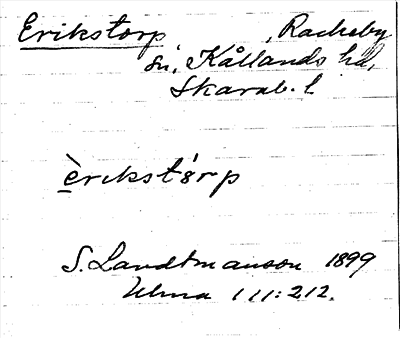 Erikstorp, Rackeby
sn, Kållands hd,
Skarab. l.
èrikstórp
S. Landtmanson 1899
Ulma 111:212.